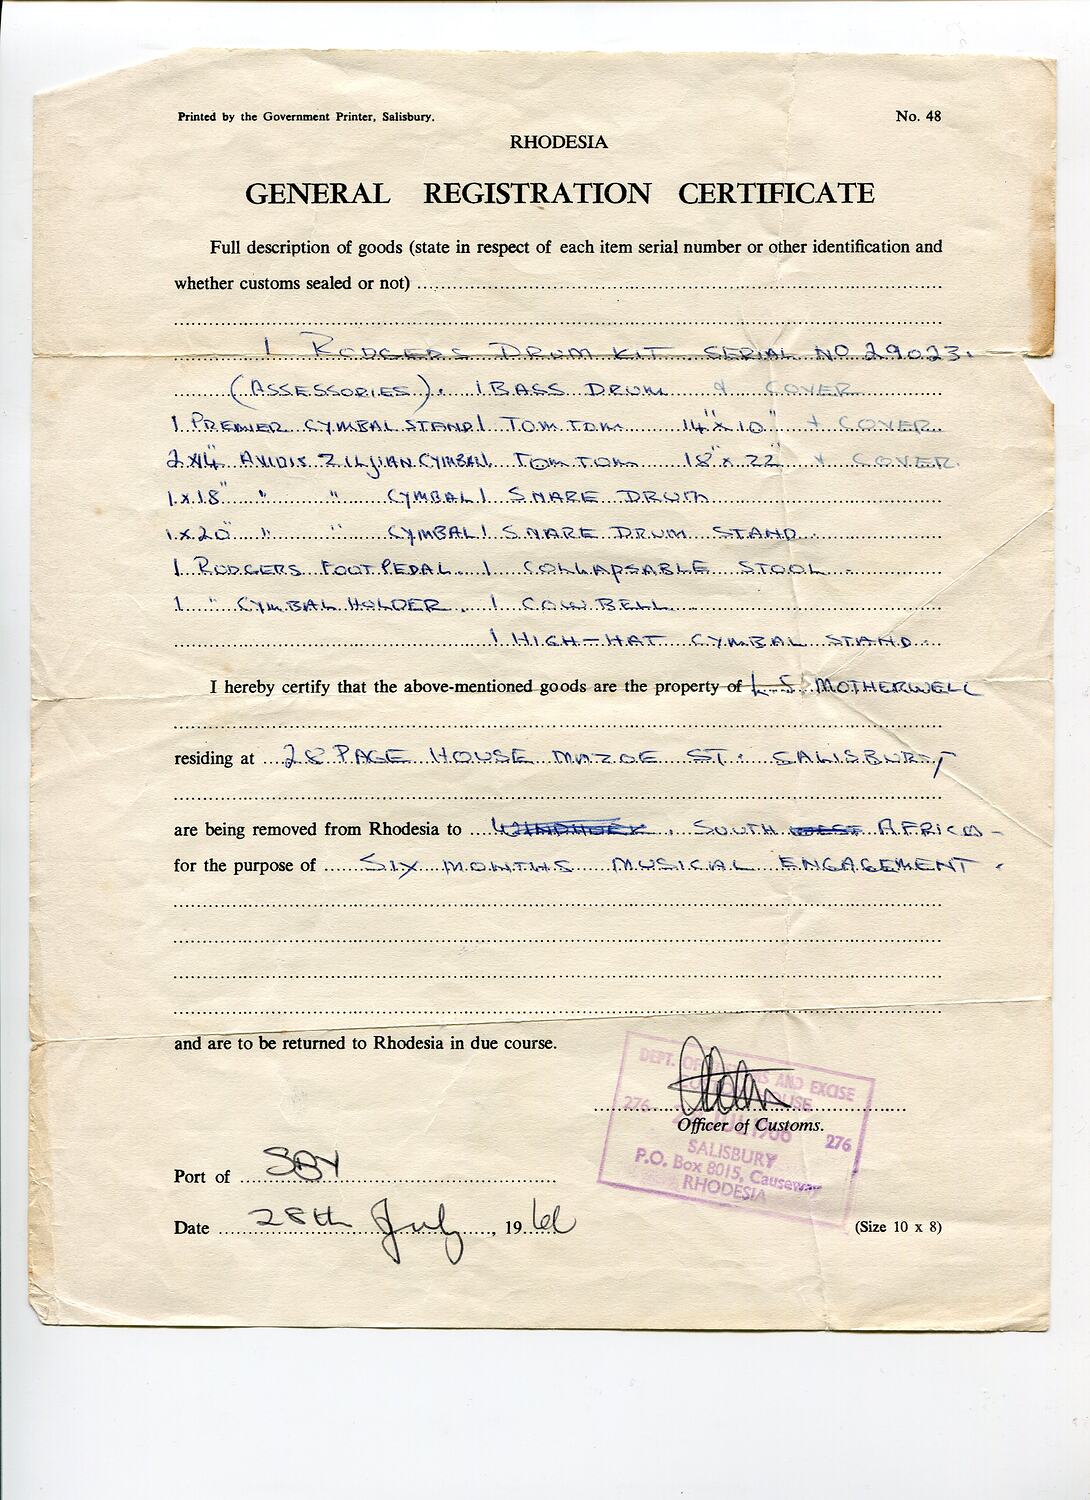 Printed by the Government Printer, Salisbury. No. 48
RHODESIA
GENERAL REGISTRATION CERTIFICATE
Full description of goods (state in respect of each item serial number or other identification and
whether customs sealed or not)
1 RODGERS DRUM KIT SERIAL NO 29023.
(ASSESSORIES). 1 BASS DRUM & COVER
1 PREMIER CYMBAL STAND 1 TOM TOM 14" x 10" + COVER
2 x 14" AVIDIS ZILJIAN CYMBAL 1 TOM TOM 18" x 22" + COVER.
1 x 18" " " CYMBAL 1 SNARE DRUM
1 x 20" " " CYMBAL 1 SNARE DRUM STAND.
1 RODGERS FOOT PEDAL. 1 COLLAPSABLE STOOL
1 " CYMBAL HOLDER. 1 COW BELL
1 HIGH-HAT CYMBAL STAND.
I hereby certify that the above-mentioned goods are the property of L. S. MOTHERWELL
residing at 28 PAGE HOUSE MAZOE ST. SALISBURY
are being removed from Rhodesia to WINDHOEK, SOUTH WEST AFRICA-
for the purpose of SIX MONTHS MUSICAL ENGAGEMENT.
and are to be returned to Rhodesia in due course.
DEPT. OF CUSTOMS AND EXCISE
276
Officer of Customs.
276
SALISBURY
P.O. Box 8015, Causeway
RHODESIA
Port of SBY
Date 28th July, 1966 (Size 10 x 8)